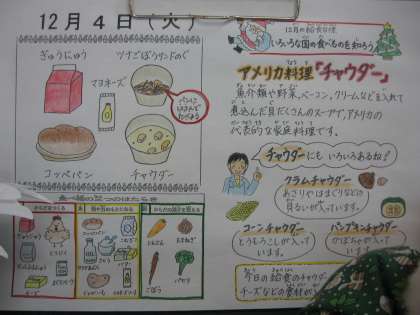 12月4日(火)
ぎゅうにゅう
ツナごぼうサンドのぐ
マヨネーズ
パンに
はさんで
たべよう
コッペパン
チャウダー
食べ物の三つのはたらき
12月の給食目標
いろいろな国の食べものを知ろう
アメリカ料理「チャウダー」
魚介類や野菜、ベーコン、クリームなどを入れて
煮込んだ具だくさんのスープで、アメリカの
代表的な家庭料理です。
チャウダーにもいろいろあるね!
クラムチャウダー
あさりやはまぐりなどの
貝るいが入っています。
コーンチャウダー
とうもろこしが入って
います。
パンプキンチャウダー
かぼちゃが入って
います。
今日の給食のチャウダー
チーズなどの食材が
にんじん
たまねぎ
ごぼう
パセリ